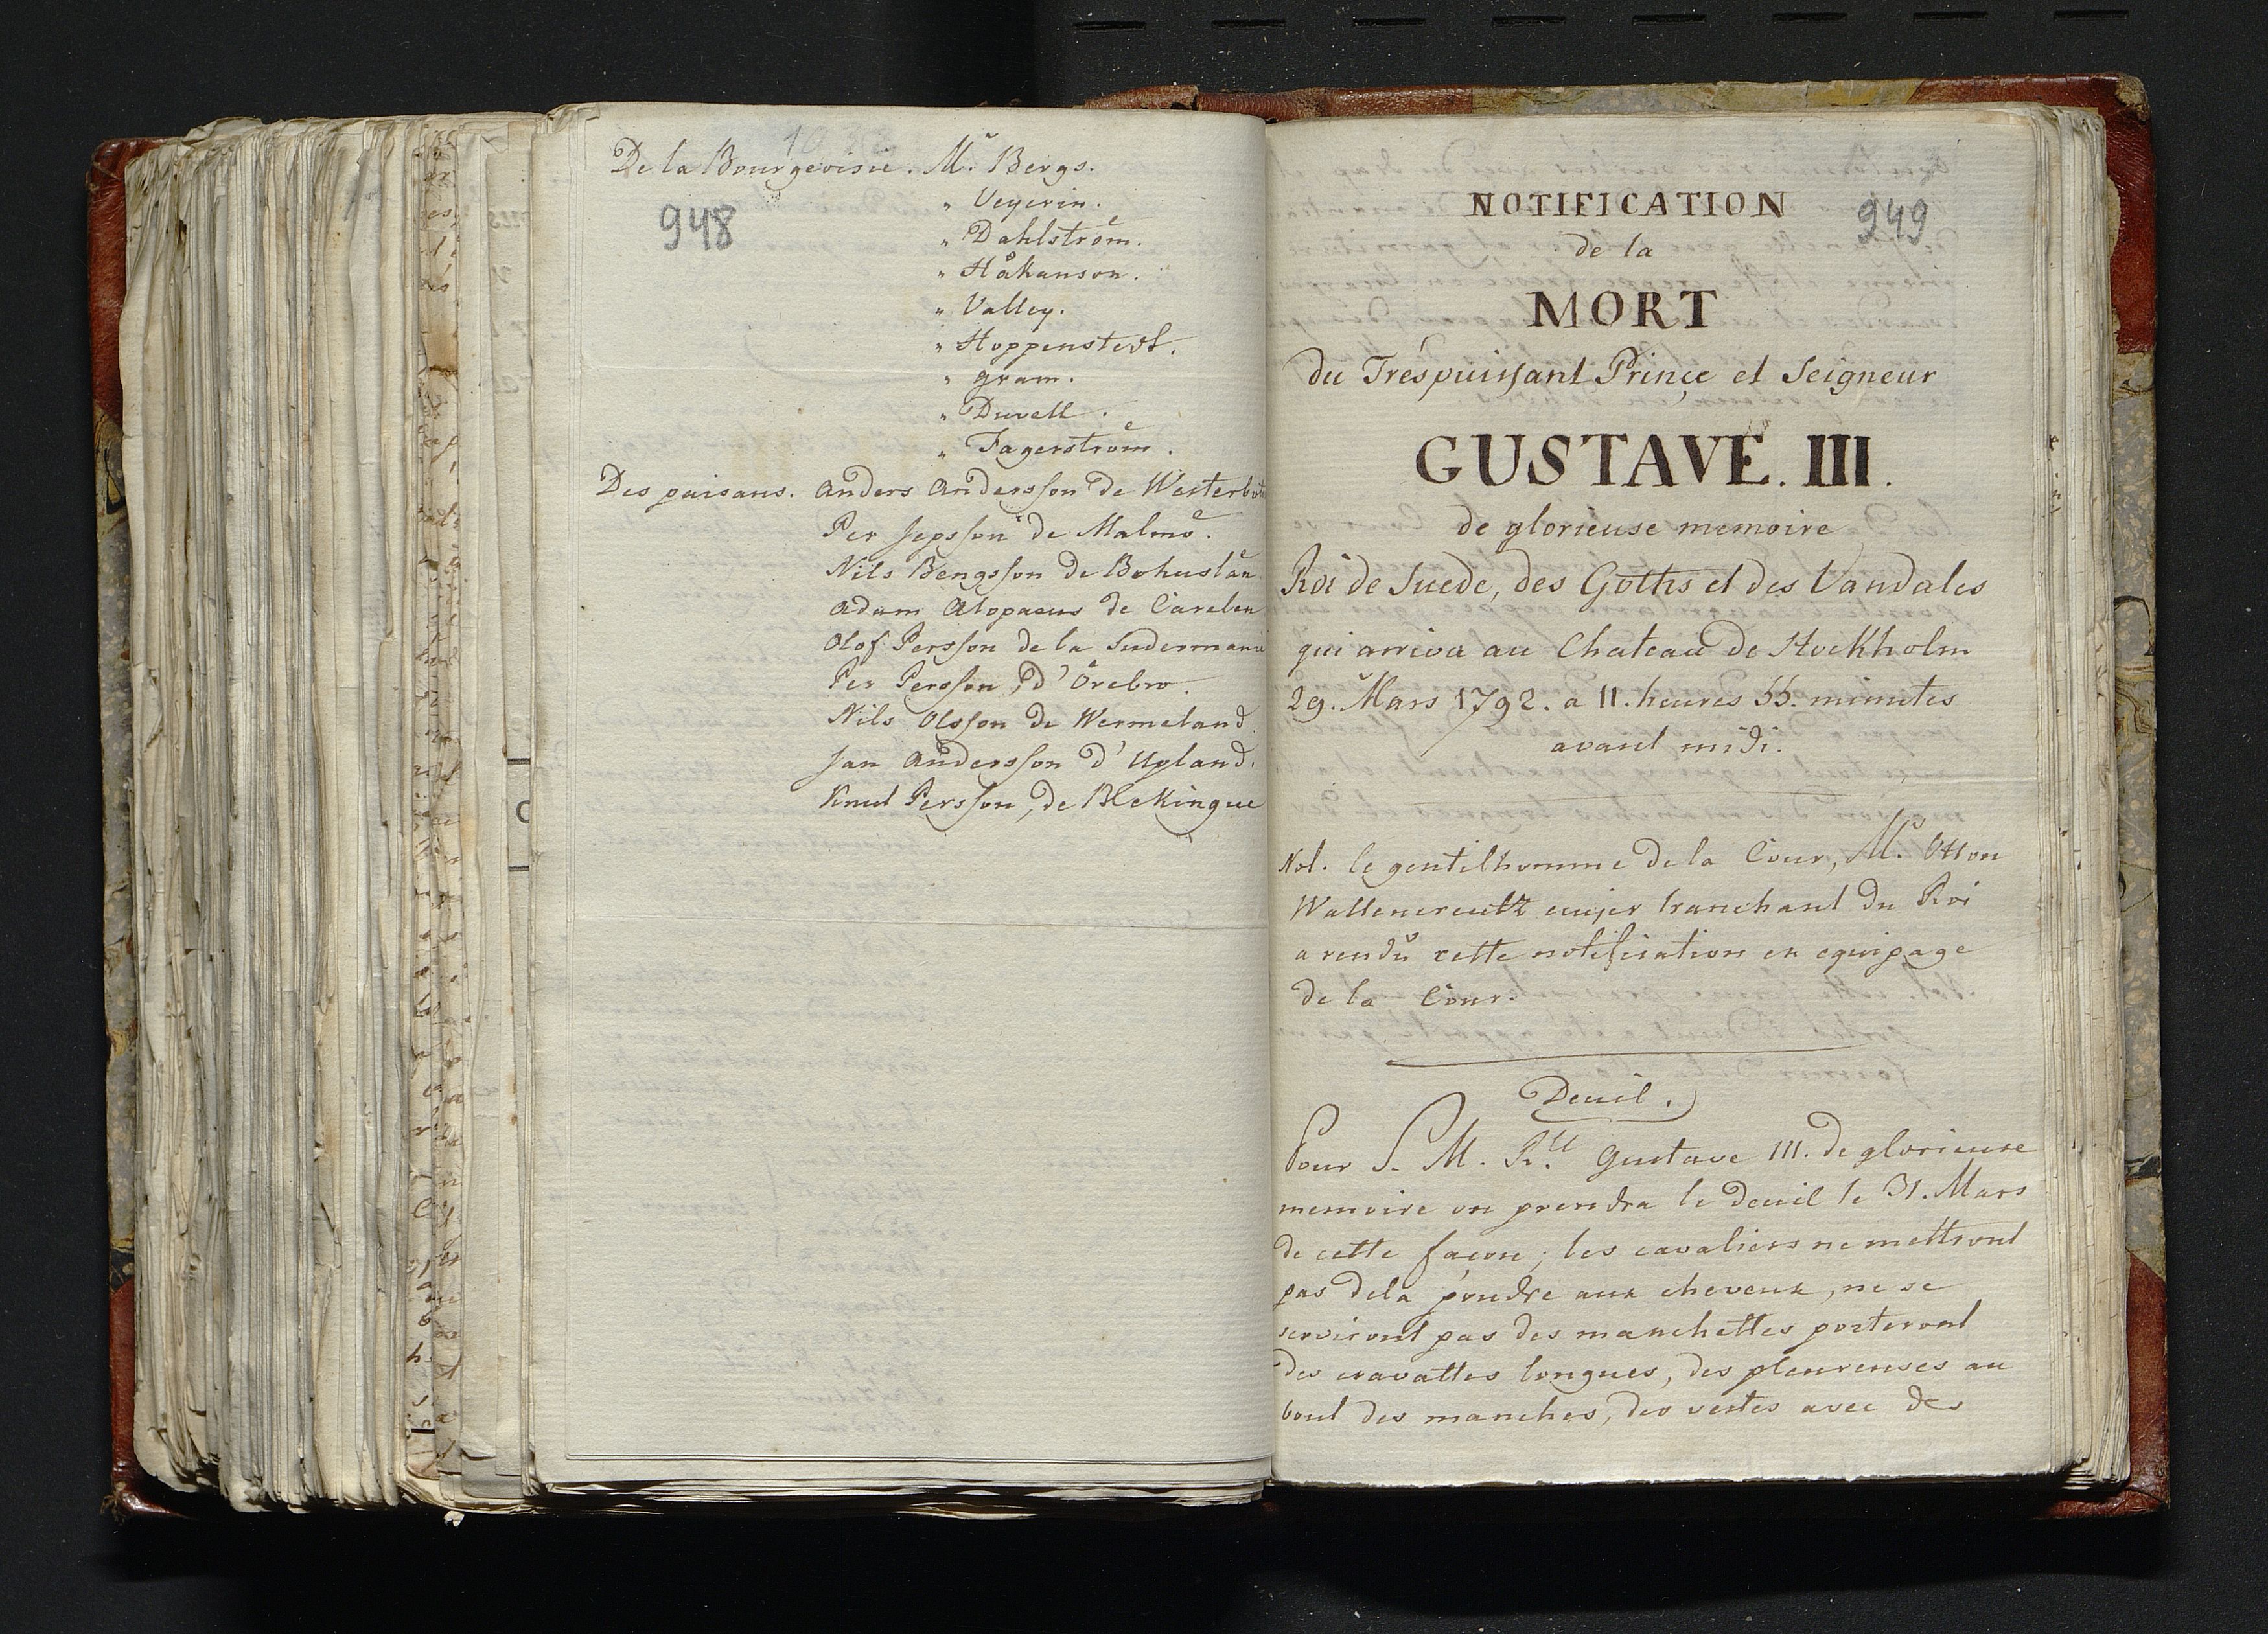 De la Bourgeoisie. Mr. Bergs.
948
" Vegerin.
" Dahlström.
" Håkanson.
" Valley.
" Hoppenstedt.
" gram.
" Duvell.
" Fagerström.
Des paisans. Anders Andersson de Westerbot
Per Jepsson de Malmö.
Nils Bengsson de Bohuslän
Adam Alopaeus de Carelen
Olof Persson de la Sudermanie
Per Persson, d'Örebro.
Nils Olsson de Wermeland.
Jan Andersson d'Upland.
Knut Persson, de Blekingue
NOTIFICATION
949
de la
MORT
du Trés puissant Prince et Seigneur
GUSTAVE. III.
de glorieuse memoire
Roi de Suede, des Goths et des Vandales
qui arriva au Chateau de Stockholm
29. Mars 1792. a 11. heures 55. minutes
avant midi.
Not. le gentilhomme de la Cour, Mr. Otton
Wallencreutz ecujer tranchant du Roi
a rendu cette notification en equipage
de la Cour.
Deuil.
Pour S. M. R.ll Gustave III. de glorieuse
memoire on prendra le deuil le 31. Mars
de cette façon; les cavaliers ne mettront
pas dela poudre aux cheveux, ne se
serviront pas des manchettes porteront
des cravattes longues, des pleureuses au
bout des manches, des vestes avec des